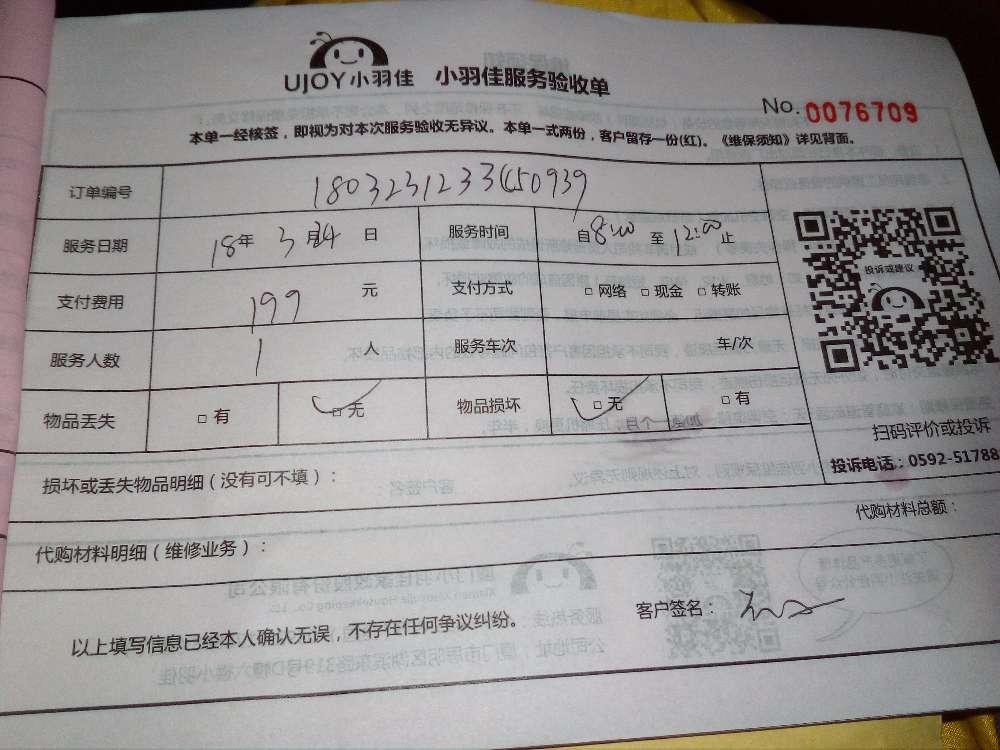 UJOY小羽佳 小羽佳服务验收单
No. 0076709
本单一经核签，即视为对本次服务验收无异议。本单一式两份，客户留存一份(红)。《维保须知》详见背面。
订单编号
服务日期 18年 3月24日 服务时间 自8:00至12:00止
支付费用 199 元 支付方式 □ 网络 □ 现金 □ 转账
服务人数 1 人 服务车次 车/次
物品丢失 □ 有 □ 无 物品损坏 □ 无 □ 有
投诉或建议
扫码评价或投诉
投诉电话：0592-51788
损坏或丢失物品明细（没有可不填）：
代购材料总额：
代购材料明细（维修业务）：
客户签名：
以上填写信息已经本人确认无误，不存在任何争议纠纷。